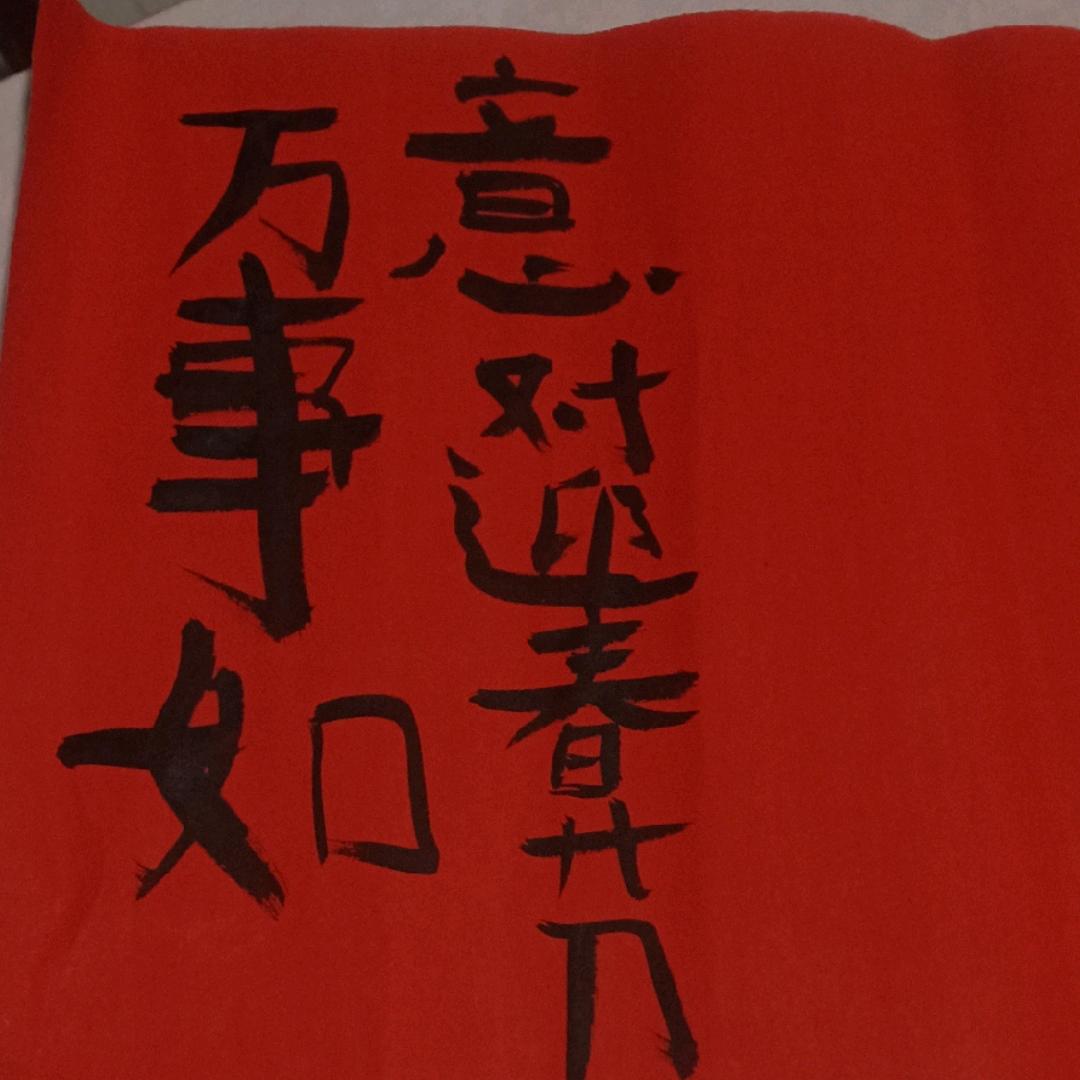 万事如
意对迎春